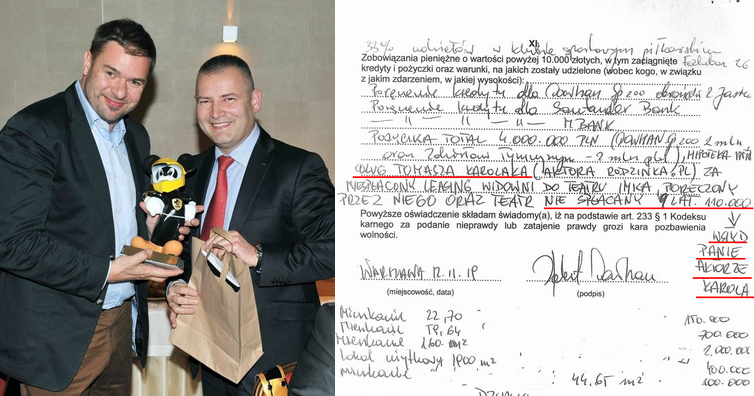 33% udziałów w klubie sportowym piłkarskim
XI.
Zobowiązania pieniężne o wartości powyżej 10.000 złotych, w tym zaciągnięte
kredyty i pożyczki oraz warunki, na jakich zostały udzielone (wobec kogo, w związku
z jakim zdarzeniem, w jakiej wysokości):
Poręczenie kredytu dla Dowhan
Poręczenie kredytu dla Santander Bank
— " — " — MBANK
POŻYCZKA TOTAL 4 000.000 PLN (DOWHAN 200 2 mln
oraz Zdzisław Tymczyszyn - 2 mln), HIPOTEKA
DŁUG TOMASZA KAROLAKA (AKTORA RODZINKA.PL) ZA
NIESPŁACONY LEASING WIDOWNI DO TEATRU IMKA, PORĘCZONY
PRZEZ NIEGO ORAZ TEATR NIE SPŁACANY LAT. 110.000
Powyższe oświadczenie składam świadomy(a), iż na podstawie art. 233 § 1 Kodeksu
karnego za podanie nieprawdy lub zatajenie prawdy grozi kara pozbawienia
wolności.
WSTYD
PANIE
AKTORZE
KAROLA
WARSZAWA 12.11.19
Robert Dowhan
(miejscowość, data) (podpis)
Mieszkanie 22,70 150.000
Mieszkanie 78,64 700.000
Mieszkanie 160 m2 2.000.000
Lokal użytkowy 1900 m2 400.000
mieszkanie 44.65 m2 100.000